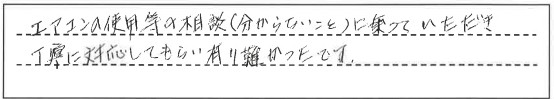 エアコンの使用等の相談(分からないこと)に乗っていただき
丁寧に対応してもらい有り難かったです。